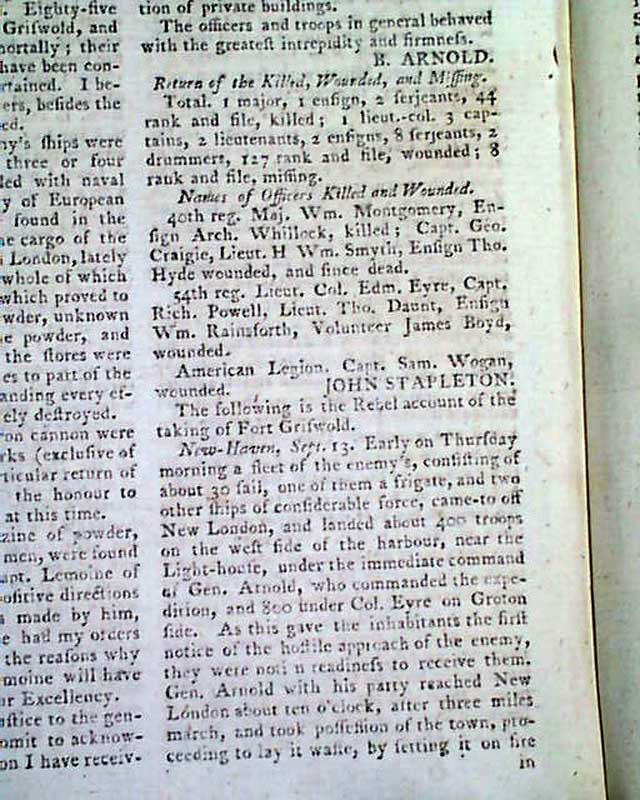 . Eighty-five
Griſwold, and
mortally ; their
have been con-
rtained. I be-
ers, beſides the
ed.
ny's ſhips were
three or four
led with naval
y of European
found in the
ne cargo of the
London, lately
whole of which
which proved to
wder, unknown
e powder, and
the ſtores were
es to part of the
anding every ef-
ely deſtroyed.
ron cannon were
rks (excluſive of
rticular return of
the honour to
at this time.
zine of powder,
men, were found
apt. Lemoine of
oſitive directions
made by him,
e had my orders
the reaſons why
moine will have
ur Excellency.
uſtice to the gen-
omit to acknow-
on I have receiv-
tion of private buildings.
The officers and troops in general behaved
with the greateſt intrepidity and firmneſs.
B. ARNOLD.
Return of the Killed, Wounded, and Miſſing.
Total. 1 major, 1 enſign, 2 ſerjeants, 44
rank and file, killed ; 1 lieut.-col. 3 cap-
tains, 2 lieutenants, 2 enſigns, 8 ſerjeants, 2
drummers, 127 rank and file, wounded ; 8
rank and file, miſſing.
Names of Officers Killed and Wounded.
40th reg. Maj. Wm. Montgomery, En-
ſign Arch. Whillock, killed ; Capt. Geo.
Craigie, Lieut. H Wm. Smyth, Enſign Tho.
Hyde wounded, and ſince dead.
54th reg. Lieut. Col. Edm. Eyre, Capt.
Rich. Powell, Lieut. Tho. Daunt, Enſign
Wm. Rainsforth, Volunteer James Boyd,
wounded.
American Legion. Capt. Sam. Wogan,
wounded. JOHN STAPLETON.
The following is the Rebel account of the
taking of Fort Griſwold.
New-Haven, Sept. 13. Early on Thurſday
morning a fleet of the enemy's, conſiſting of
about 30 ſail, one of them a frigate, and two
other ſhips of conſiderable force, came-to off
New London, and landed about 400 troops
on the weſt ſide of the harbour, near the
Light-houſe, under the immediate command
of Gen. Arnold, who commanded the expe-
dition, and 800 under Col. Eyre on Groton
ſide. As this gave the inhabitants the firſt
notice of the hoſtile approach of the enemy,
they were not i n readineſs to receive them.
Gen. Arnold with his party reached New
London about ten o'clock, after three miles
march, and took poſſeſſion of the town, pro-
ceeding to lay it waſte, by ſetting it on fire
in